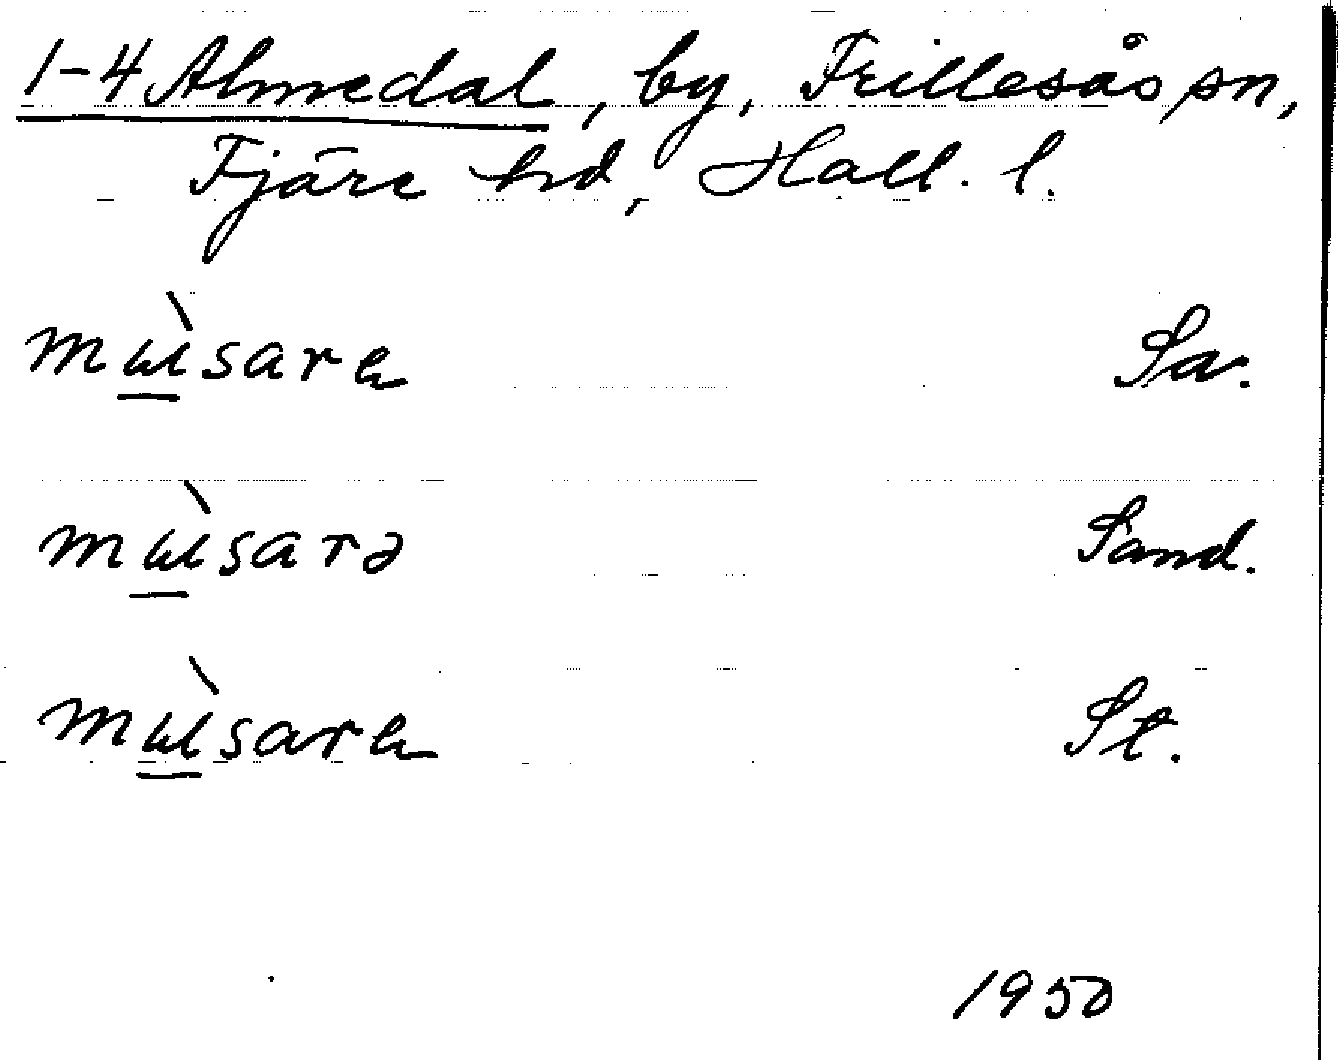 1-4 Almedal, by, Frillesås sn,
Fjäre hd, Hall. l.
mùsarɐ Sa.
mùsarə Sand.
mùsarɐ St.
1950